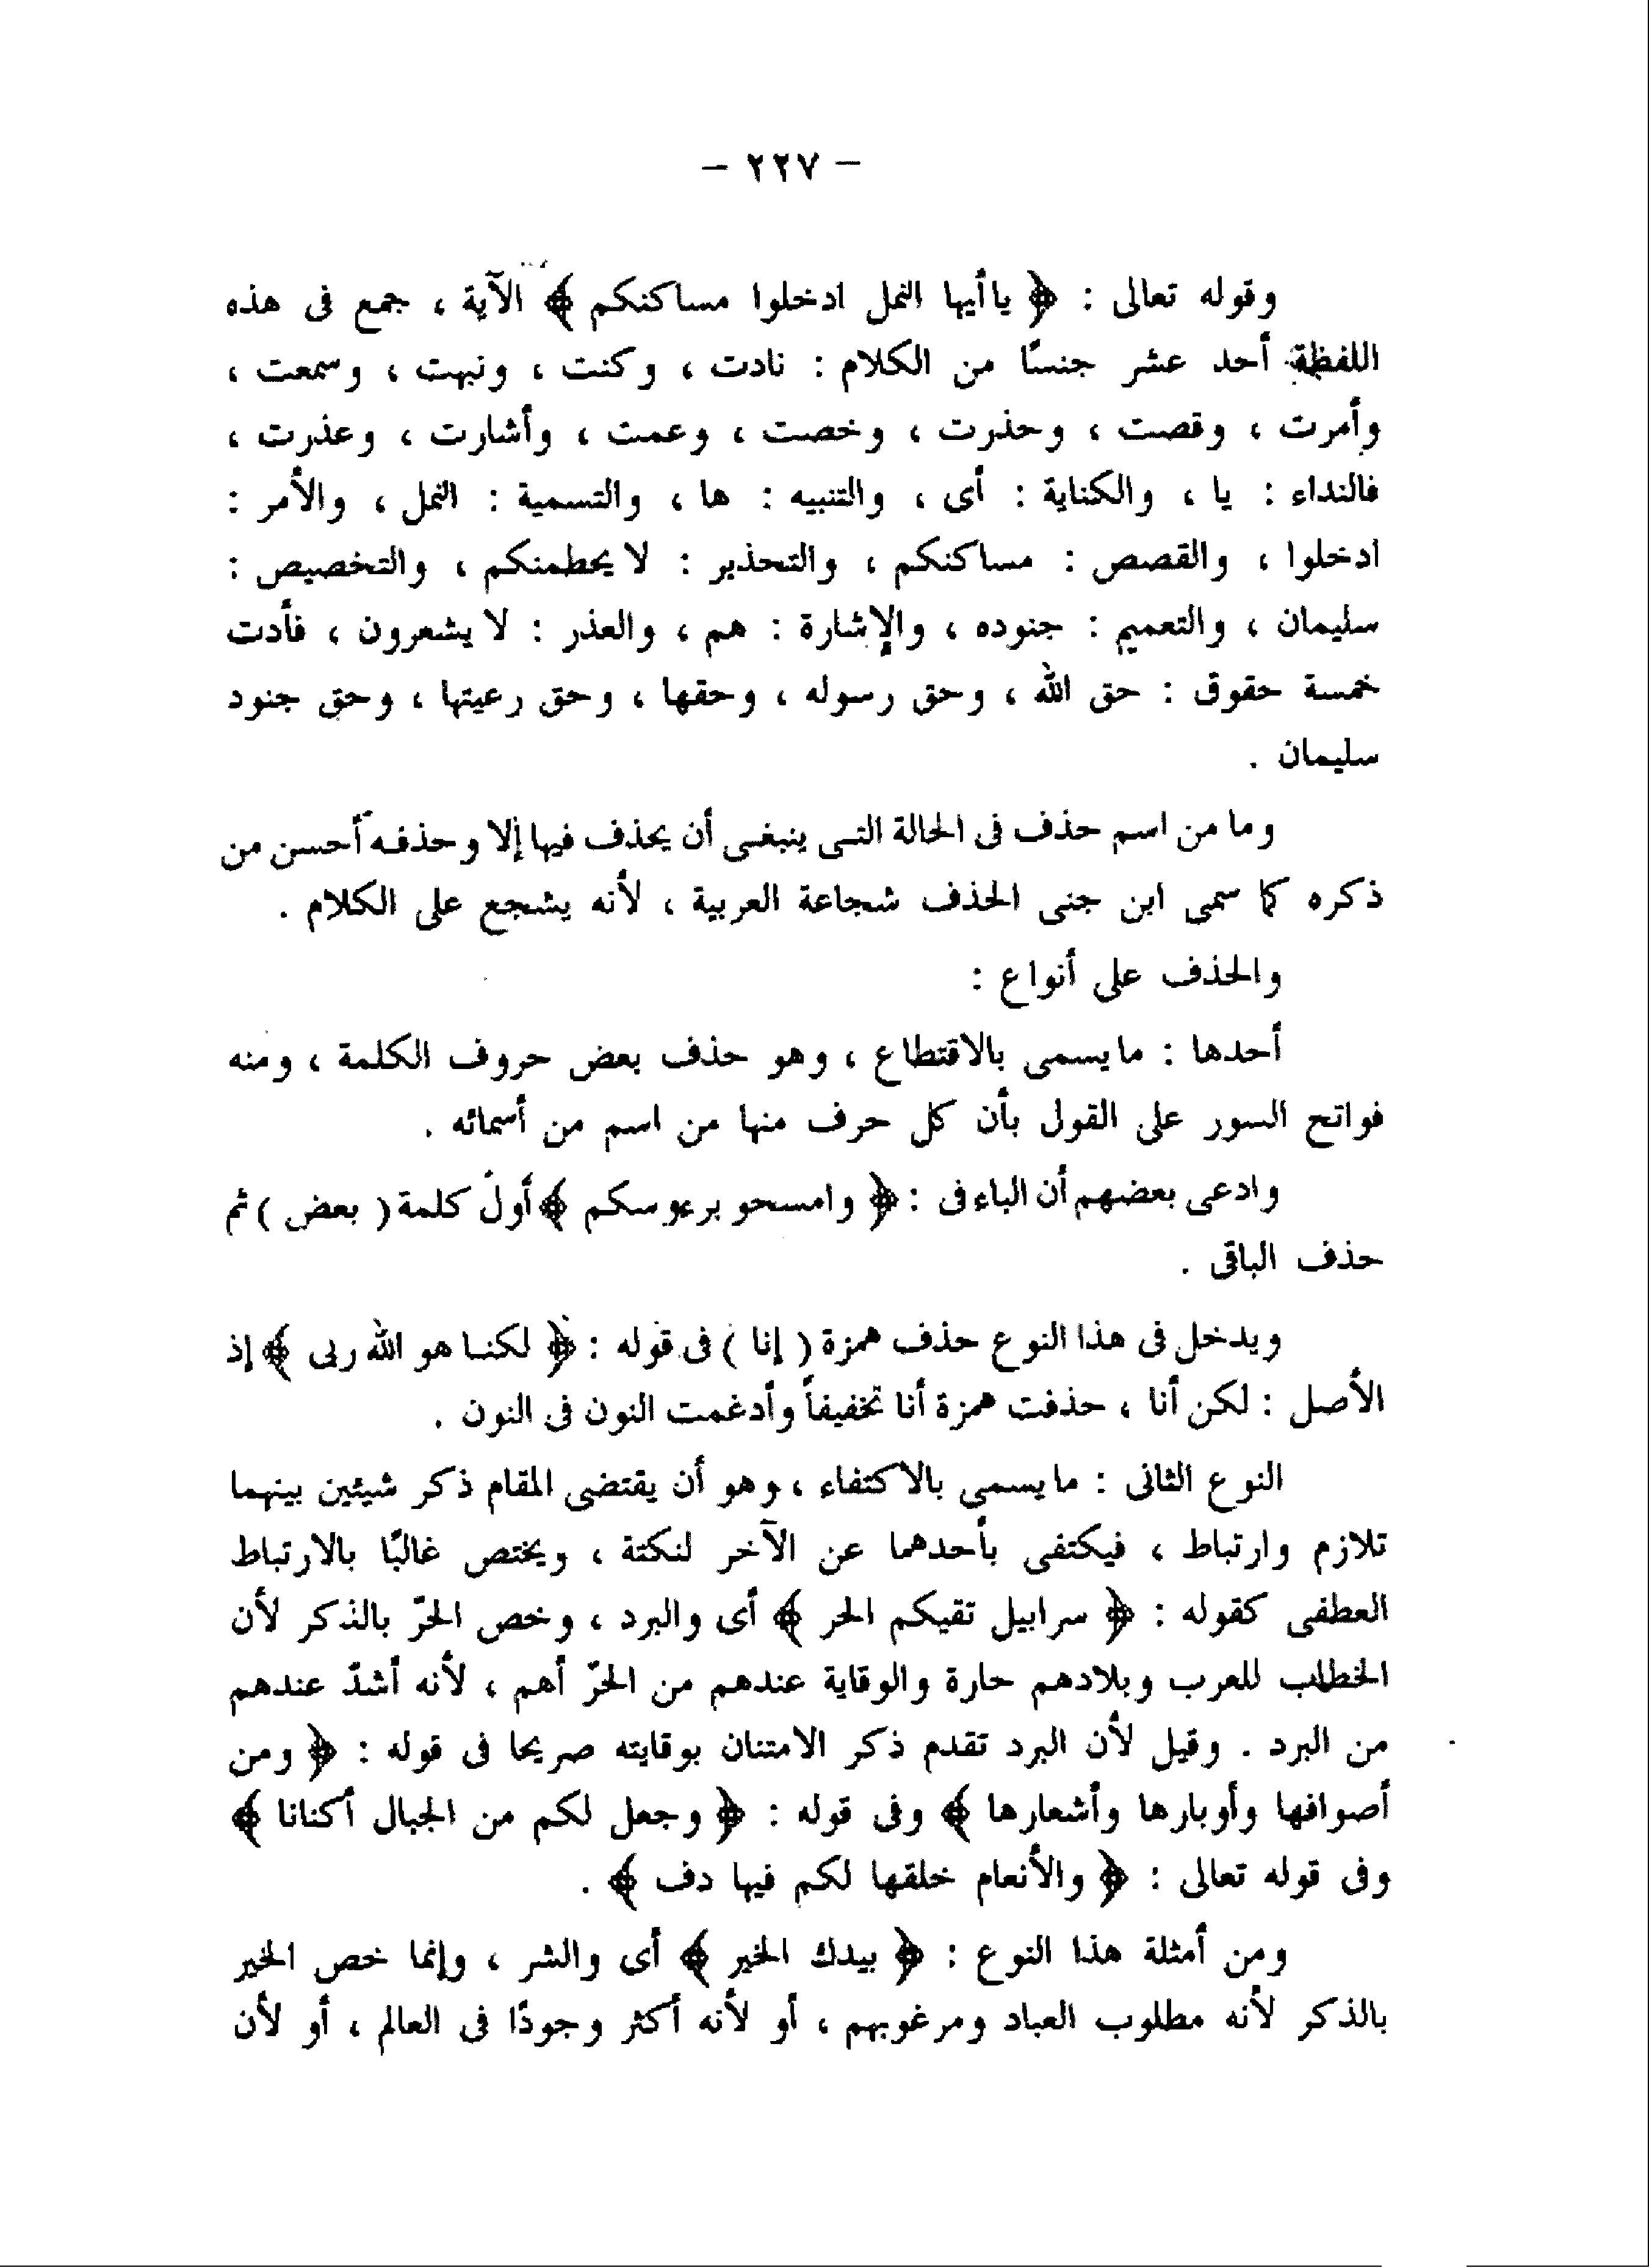 – ٢٢٧ –
وقوله تعالى : ﴿ ياأيها النمل ادخلوا مساكنكم ﴾ الآية ، جمع فى هذه
اللفظة أحد عشر جنسًا من الكلام : نادت ، وكنت ، ونبهت ، وسمعت ،
وأمرت ، وقصت ، وحذرت ، وخصت ، وعمت ، وأشارت ، وعذرت ،
فالنداء : يا ، والكناية : أى ، والتنبيه : ها ، والتسمية : النمل ، والأمر :
ادخلوا ، والقصص : مساكنكم ، والتحذير : لا يحطمنكم ، والتخصيص :
سليمان ، والتعميم : جنوده ، والإشارة : هم ، والعذر : لا يشعرون ، فأدت
خمسة حقوق : حق الله ، وحق رسوله ، وحقها ، وحق رعيتها ، وحق جنود
سليمان .
وما من اسم حذف فى الحالة التى ينبغى أن يحذف فيها إلا وحذفه أحسن من
ذكره كما سمى ابن جنى الحذف شجاعة العربية ، لأنه يشجع على الكلام .
والحذف على أنواع :
أحدها : مايسمى بالاقتطاع ، وهو حذف بعض حروف الكلمة ، ومنه
فواتح السور على القول بأن كل حرف منها من اسم من أسمائه .
وادعى بعضهم أن الباء فى : ﴿ وامسحو برءوسكم ﴾ أول كلمة ( بعض ) ثم
حذف الباقى .
ويدخل فى هذا النوع حذف همزة ( إنا ) فى قوله : ﴿ لكنا هو الله ربى ﴾ إذ
الأصل : لكن أنا ، حذفت همزة أنا تخفيفاً وأدغمت النون فى النون .
النوع الثانى : مايسمى بالاكتفاء ، وهو أن يقتضى المقام ذكر شيئين بينهما
تلازم وارتباط ، فيكتفى بأحدهما عن الآخر لنكتة ، ويختص غالبًا بالارتباط
العطفى كقوله : ﴿ سرابيل تقيكم الحر ﴾ أى والبرد ، وخص الحرّ بالذكر لأن
الخطاب للعرب وبلادهم حارة والوقاية عندهم من الحرّ أهم ، لأنه أشدّ عندهم
من البرد . وقيل لأن البرد تقدم ذكر الامتنان بوقايته صريحا فى قوله : ﴿ ومن
أصوافها وأوبارها وأشعارها ﴾ وفى قوله : ﴿ وجعل لكم من الجبال أكنانا ﴾
وفى قوله تعالى : ﴿ والأنعام خلقها لكم فيها دف ﴾ .
ومن أمثلة هذا النوع : ﴿ بيدك الخير ﴾ أى والشر ، وإنما خص الخير
بالذكر لأنه مطلوب العباد ومرغوبهم ، أو لأنه أكثر وجودًا فى العالم ، أو لأن